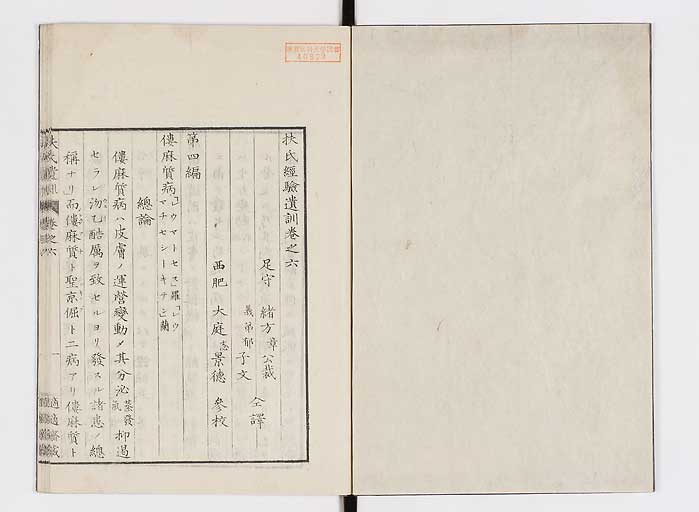 扶氏經驗遺訓卷之六
足守 緒方章公裁
義弟郁子文 仝譯
西肥 大庭忞景德 參校
第四編
僂麻質病「ウマトセス」羅「レウマチセシーキテ」蘭
總論
僂麻質病ハ皮膚ノ運營變動メ其分泌蒸發氣抑遏
セラレ沕乙酷厲ヲ致セルヨリ發スル諸患ノ總
稱ナリ而僂麻質ト聖京倔ト二病アリ僂麻質ト
扶氏遺訓 卷之六
一
適適齋藏
40822